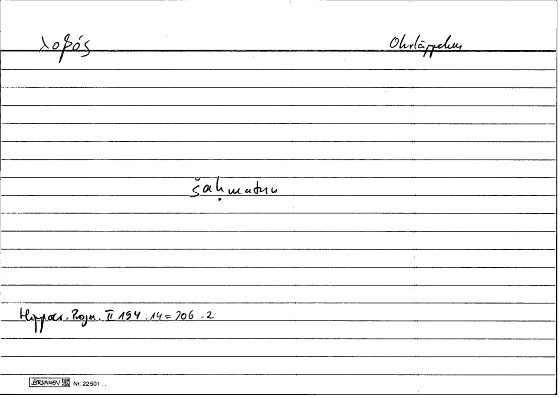 λοβός Ohrläppchen
šaḥmatun
Hippocr. Progn. II 194 . 14 = 206 . 2
BRUNNEN Nr. 22501 . .